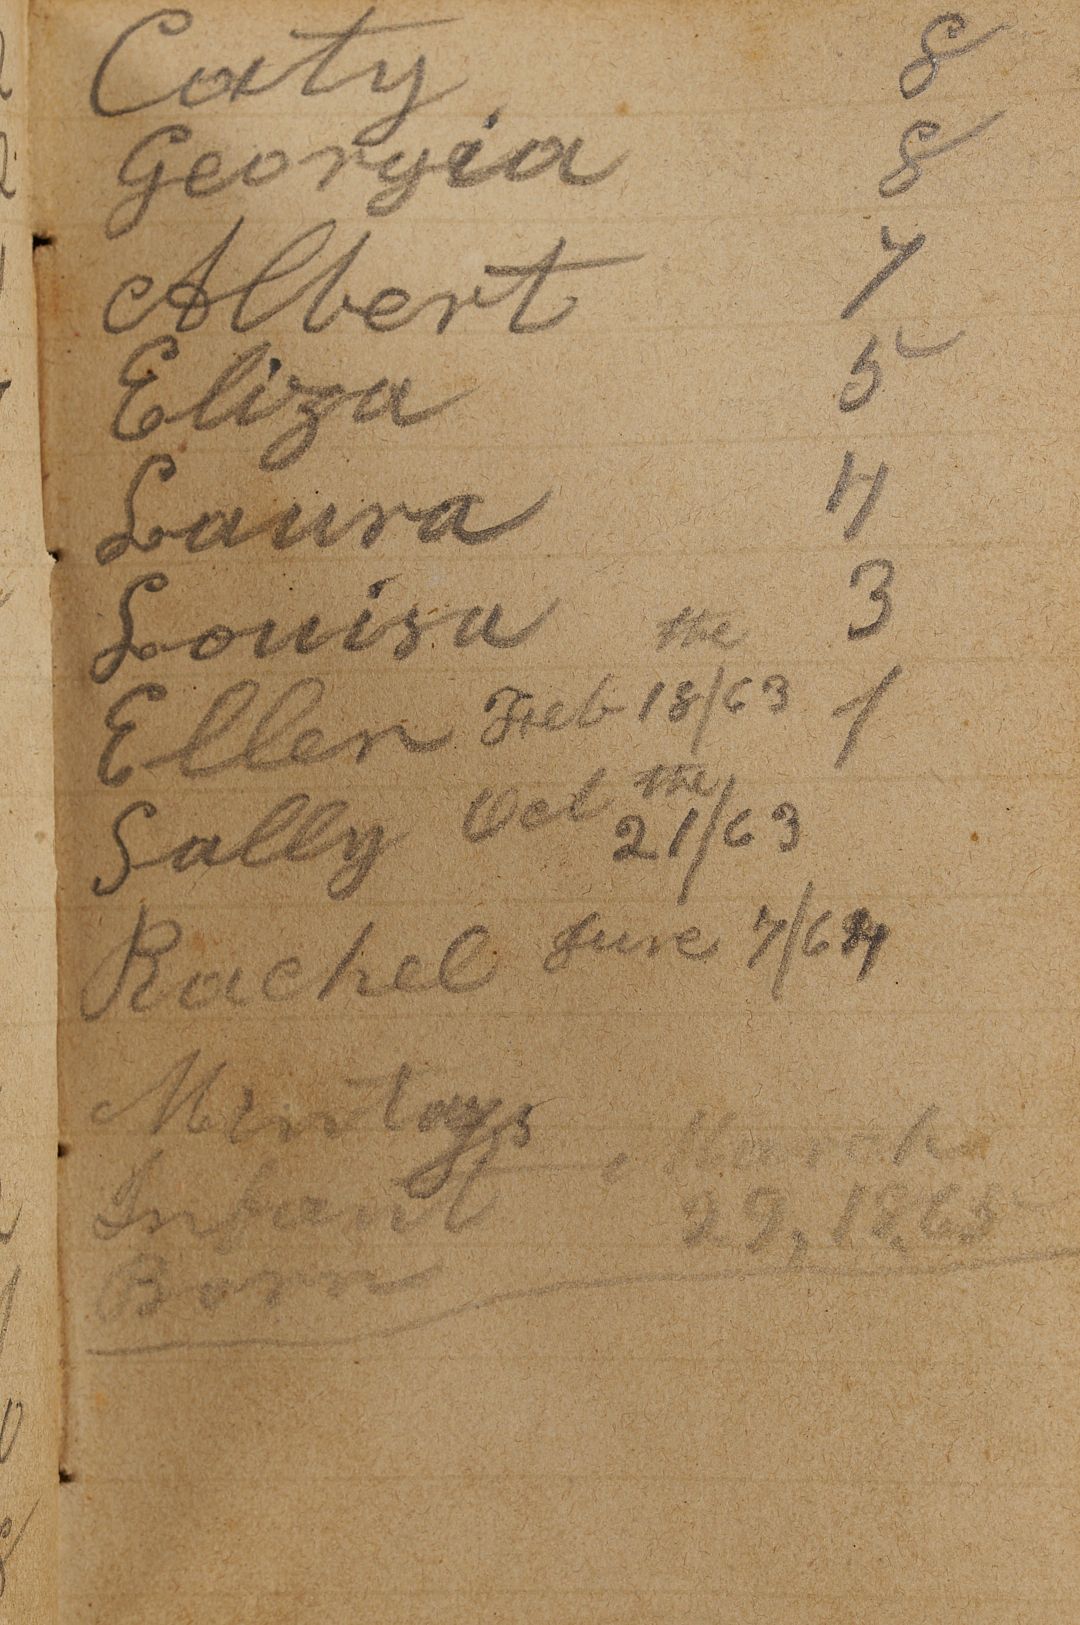 Caty 8
Georgia 8
Albert 7
Eliza 5
Laura 4
Louisa 3
Ellen Feb the 18/63 1
Sally Oct the 21/63
Rachel June 7/64
Mintays
Infant , March
Born 29, 1865